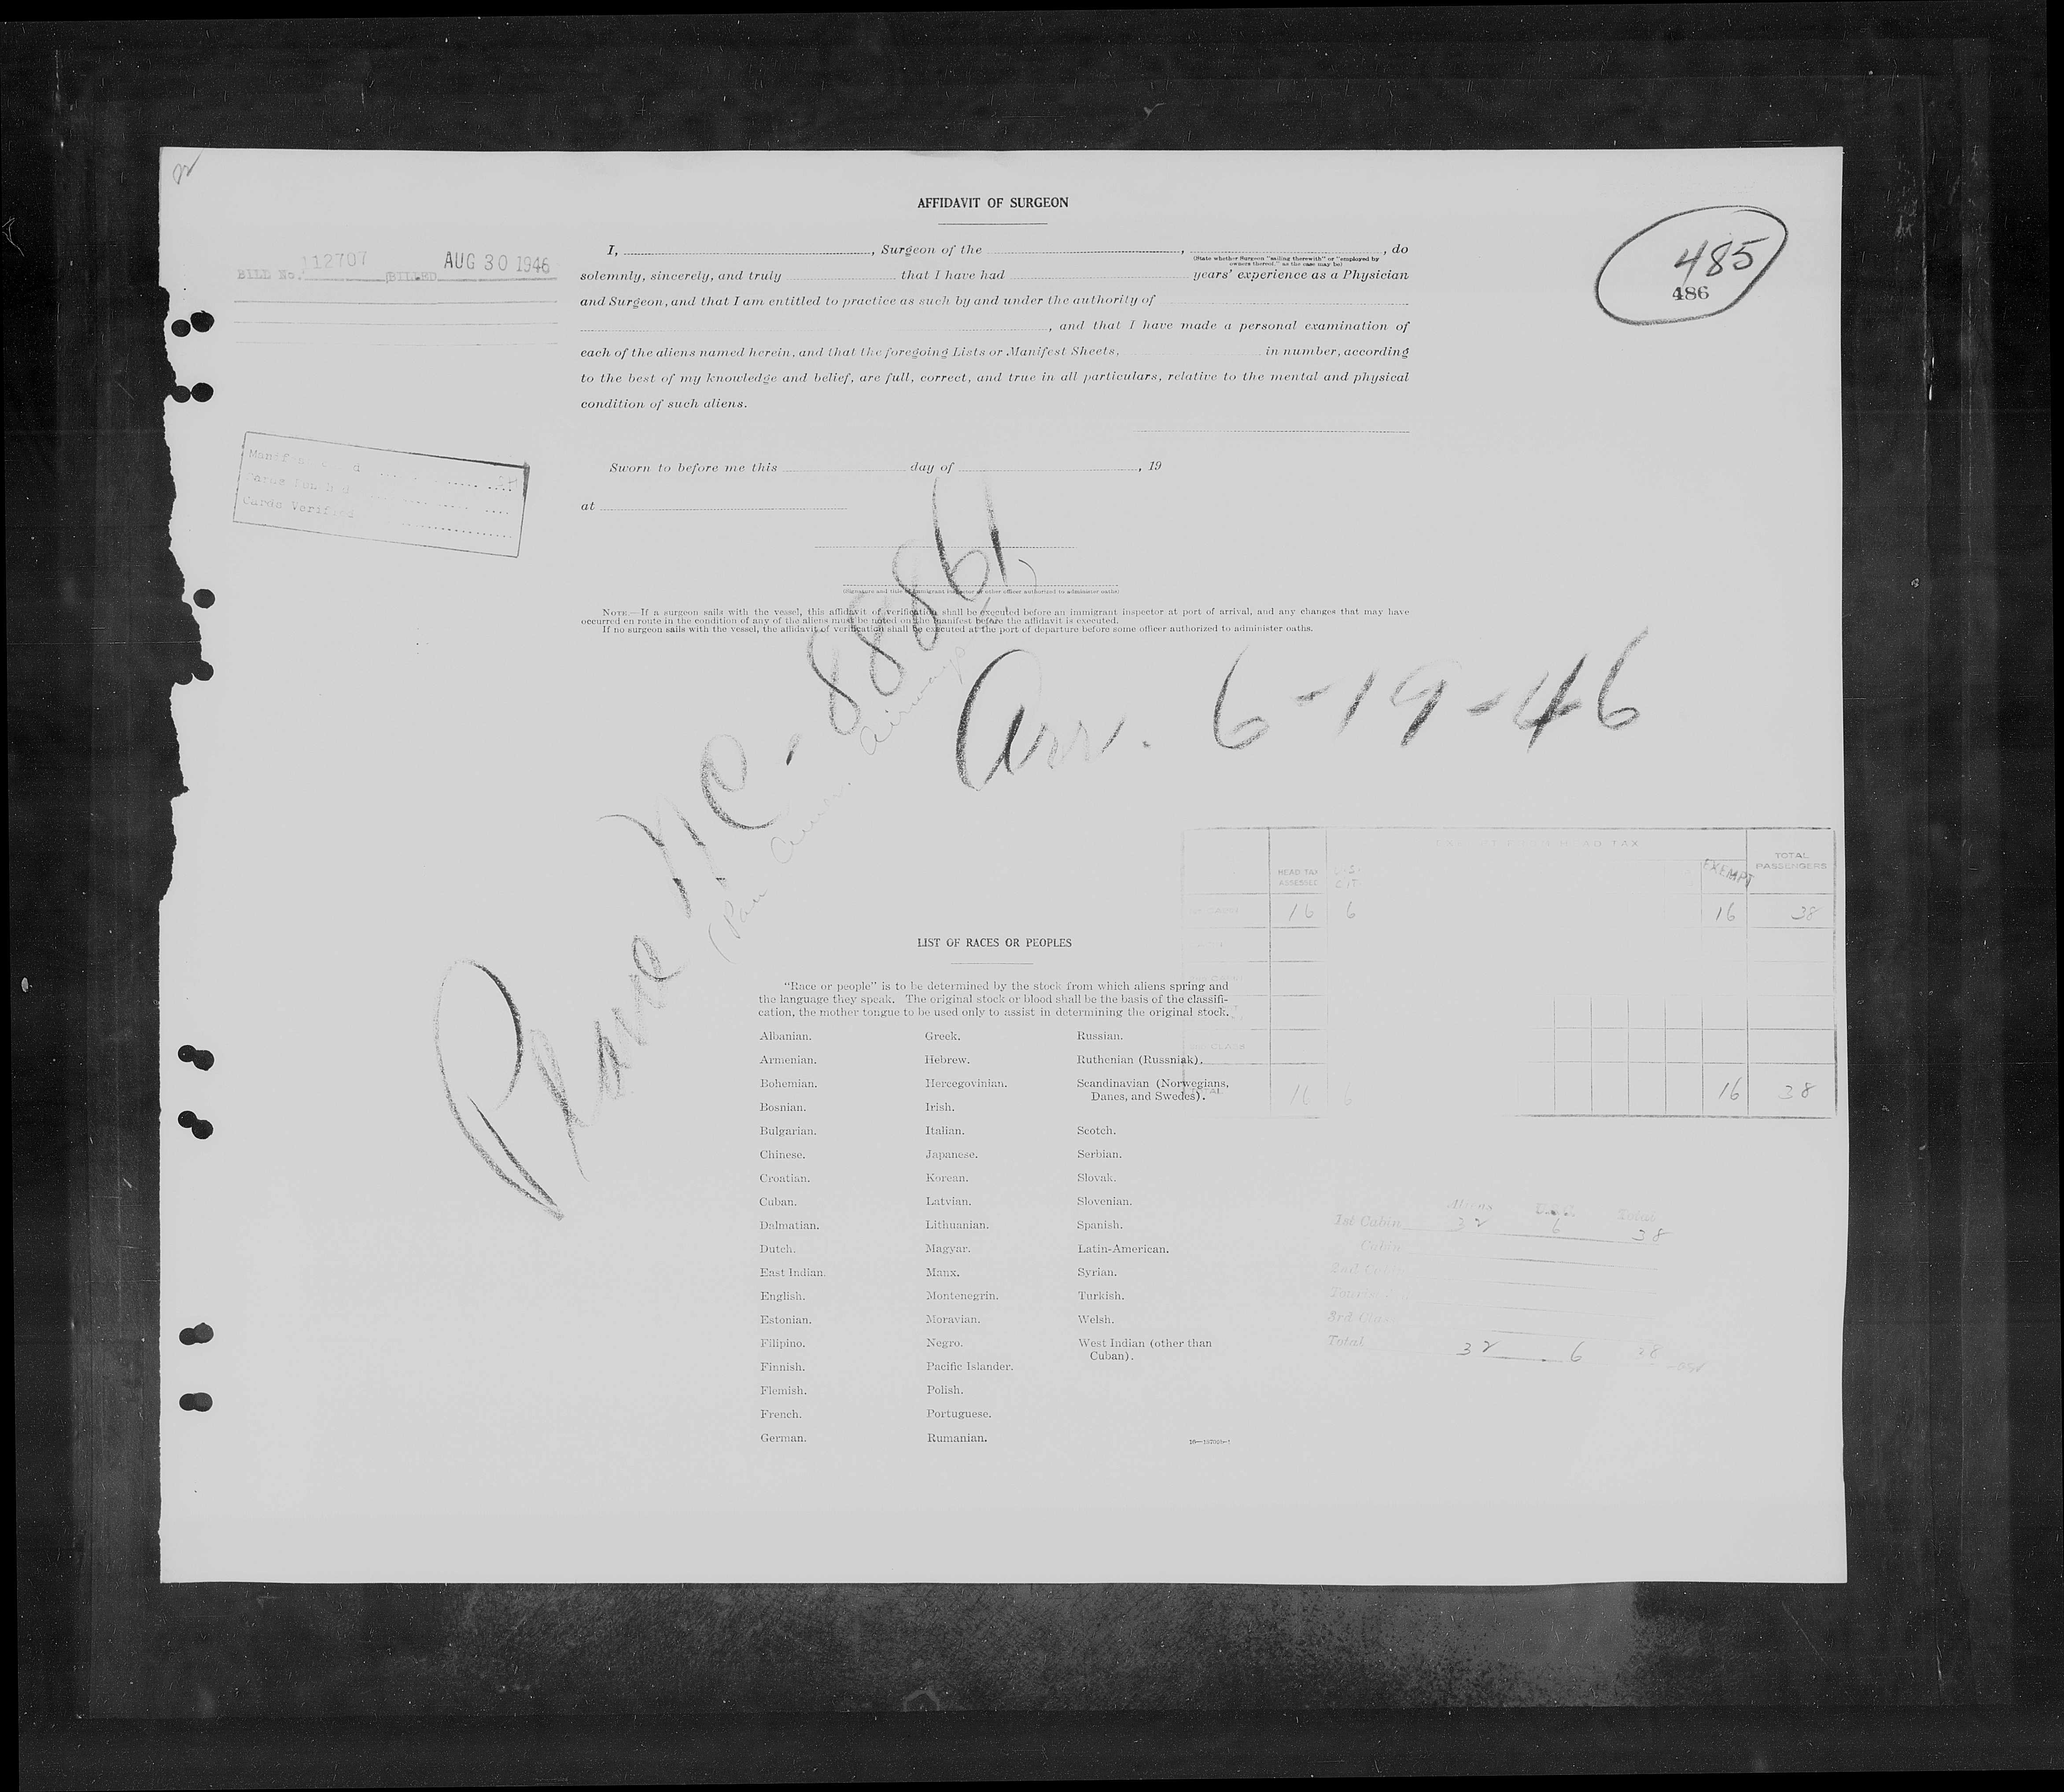 AFFIDAVIT OF SURGEON
I, , Surgeon of the , , do
(State whether Surgeon "sailing therewith" or "employed by
owners thereof," as the case may be)
solemnly, sincerely, and truly that I have had years' experience as a Physician
and Surgeon, and that I am entitled to practice as such by and under the authority of
, and that I have made a personal examination of
each of the aliens named herein, and that the foregoing Lists or Manifest Sheets, in number, according
to the best of my knowledge and belief, are full, correct, and true in all particulars, relative to the mental and physical
condition of such aliens.
BILL No. 112707 BILLED AUG 30 1946
485
486
Cards Verified
Sworn to before me this day of , 19
at
(Signature and title of immigrant inspector or other officer authorized to administer oaths)
NOTE.—If a surgeon sails with the vessel, this affidavit of verification shall be executed before an immigrant inspector at port of arrival, and any changes that may have
occurred en route in the condition of any of the aliens must be noted on the manifest before the affidavit is executed.
If no surgeon sails with the vessel, the affidavit of verification shall be executed at the port of departure before some officer authorized to administer oaths.
Plane NC-88861
(Pan Amer. Airways)
Arr. 6-19-46
HEAD TAX ASSESSED U.S. CIT. EXEMPT TOTAL PASSENGERS
16 6 16 38
TOTAL 16 6 16 38
LIST OF RACES OR PEOPLES
"Race or people" is to be determined by the stock from which aliens spring and
the language they speak. The original stock or blood shall be the basis of the classifi-
cation, the mother tongue to be used only to assist in determining the original stock.
Albanian. Greek. Russian.
Armenian. Hebrew. Ruthenian (Russniak).
Bohemian. Hercegovinian. Scandinavian (Norwegians,
Danes, and Swedes).
Bosnian. Irish.
Bulgarian. Italian. Scotch.
Chinese. Japanese. Serbian.
Croatian. Korean. Slovak.
Cuban. Latvian. Slovenian.
Dalmatian. Lithuanian. Spanish.
Dutch. Magyar. Latin-American.
East Indian. Manx. Syrian.
English. Montenegrin. Turkish.
Estonian. Moravian. Welsh.
Filipino. Negro. West Indian (other than
Cuban).
Finnish. Pacific Islander.
Flemish. Polish.
French. Portuguese.
German. Rumanian.
Aliens U.S. Total
1st Cabin 32 6 38
Cabin
2nd Cabin
3rd Class
Total 32 6 38